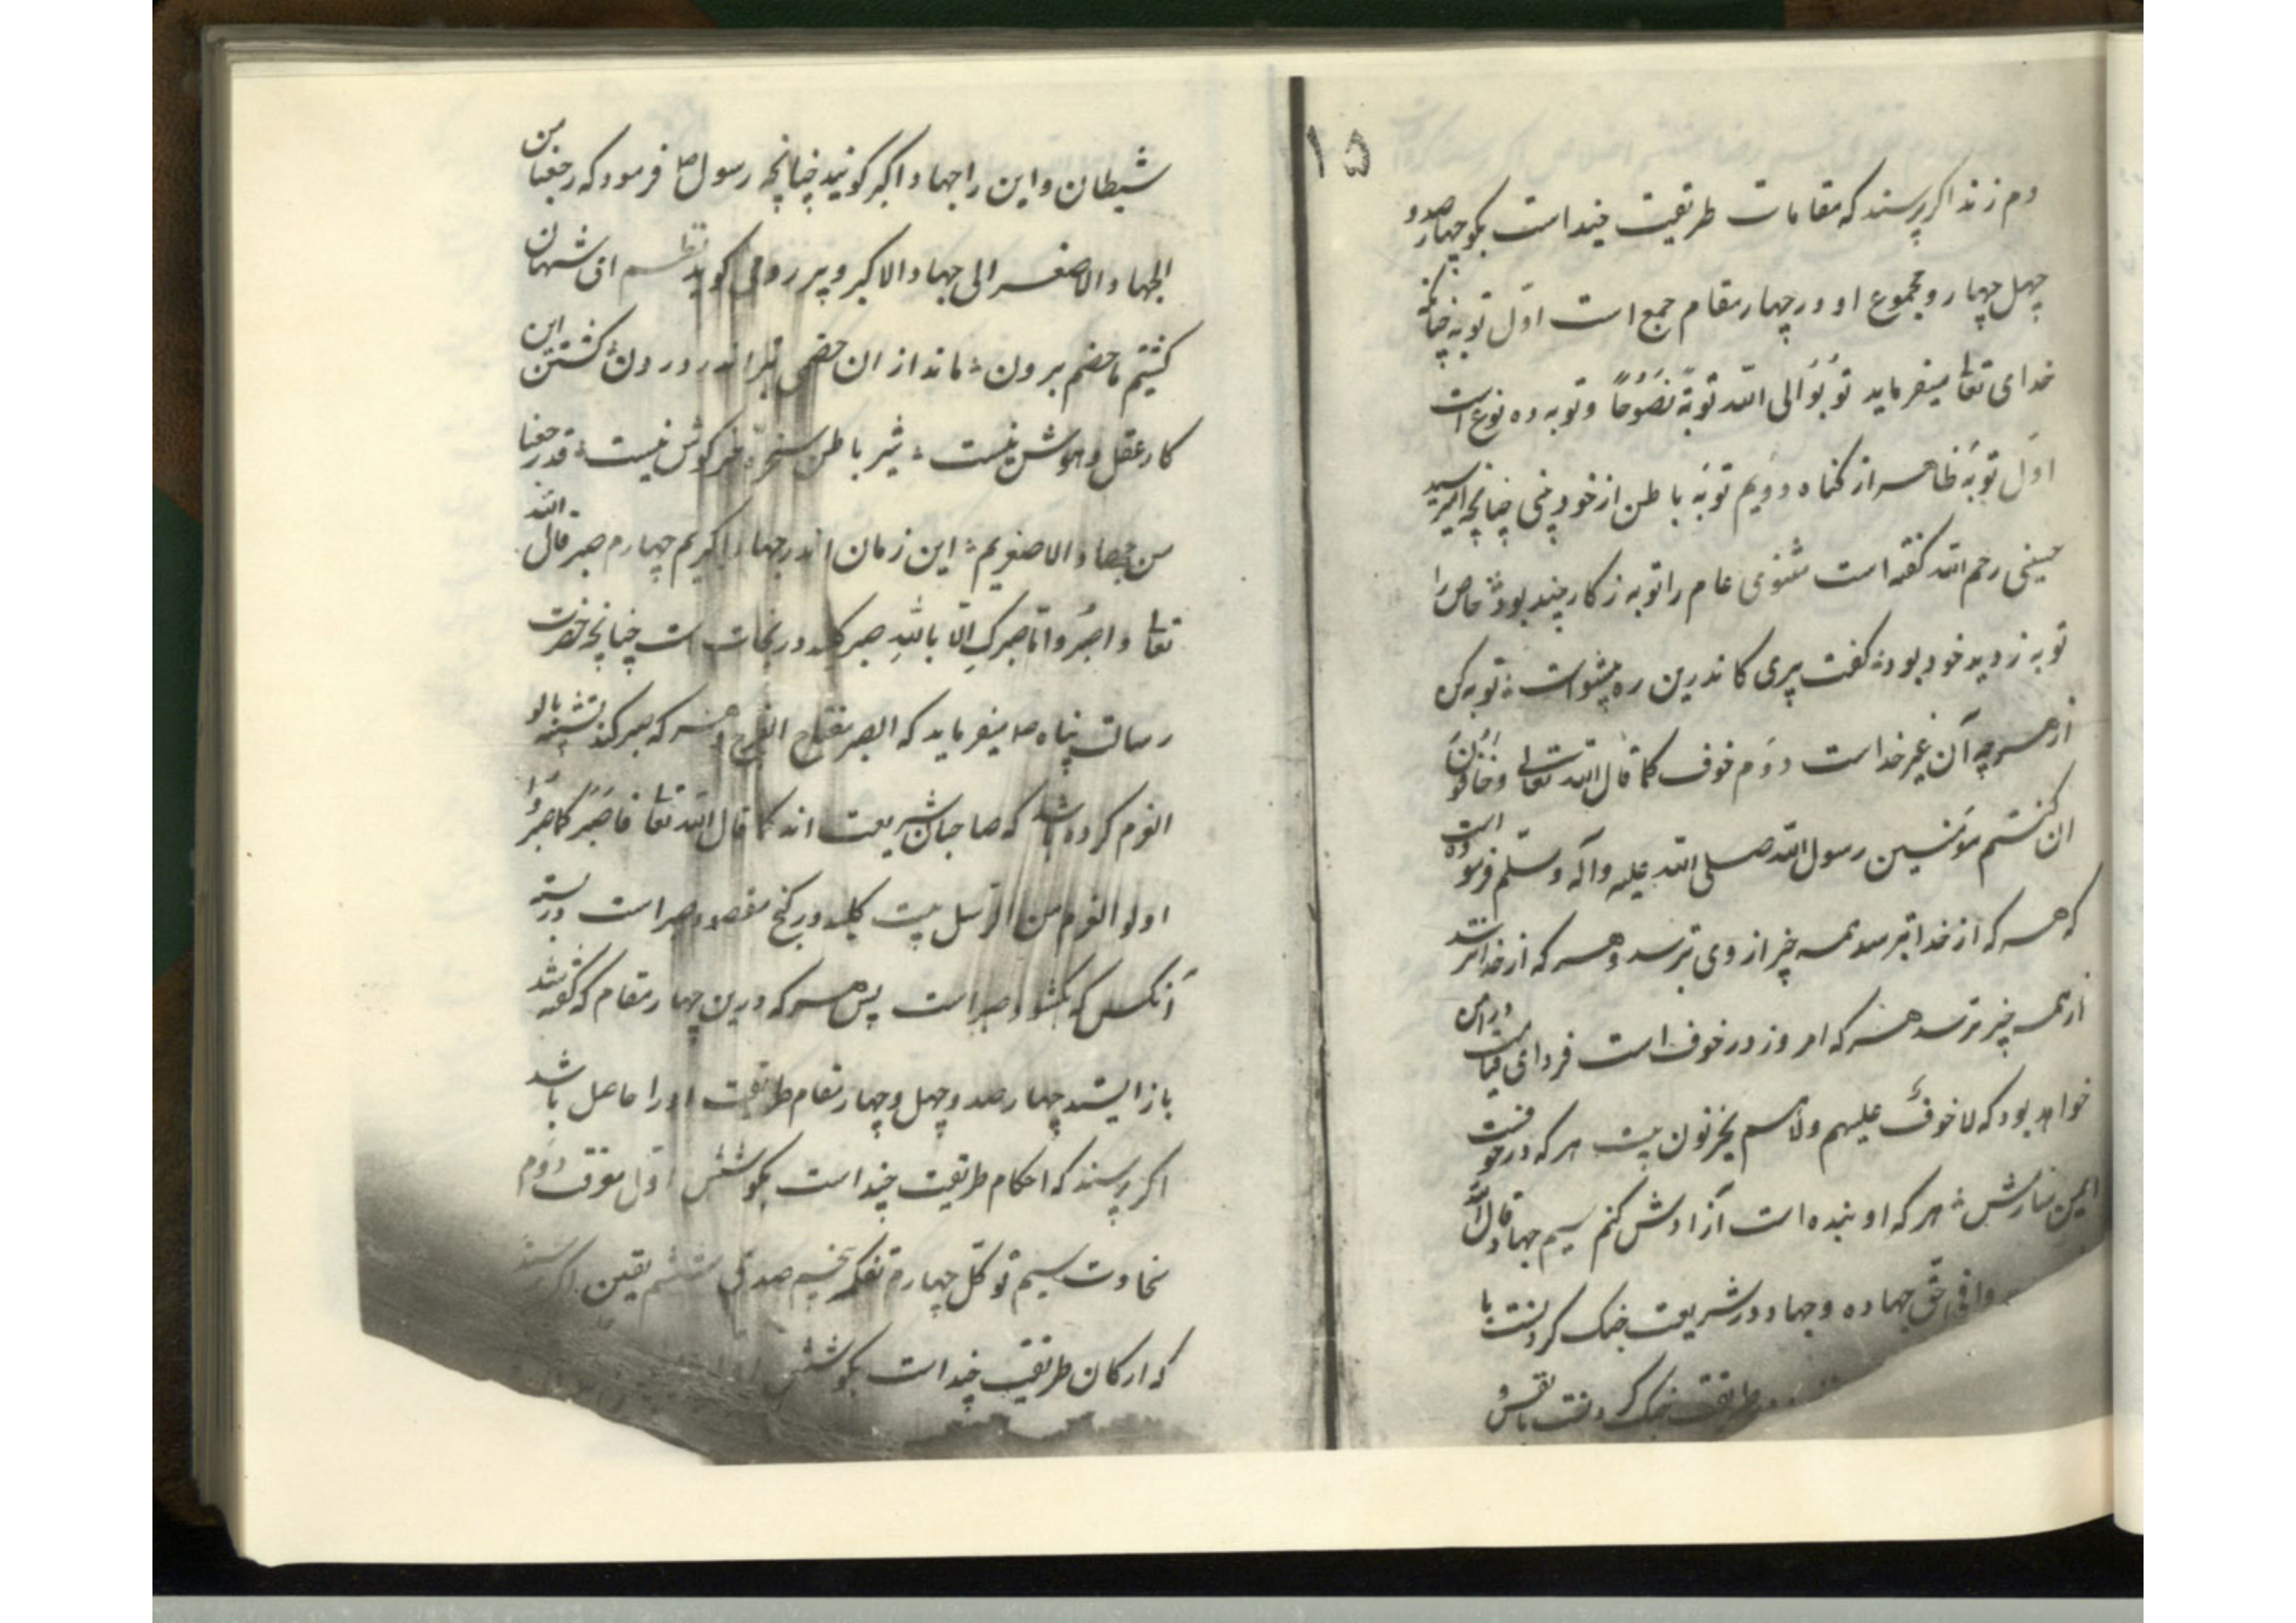 ۱۵
دم زند اکر پرسند که مقامات طریقت چند است بکو چهار صد و
چهل چهار و مجموع او در چهار مقام جمع است اوّل توبه چنانکه
خدای تعا میفرماید تُوبُوا الی اللّه توبةً نَصُوحًا و توبه ده نوع است
اوّل توبهٔ ظاهر از کناه دویم توبهٔ باطن از خود چنانچه امیر سید
حسینی رحم اللّه کفته است مثنوی عام را توبه ز کار بد بود خاص را
توبه ز دید خود بود کفت پیری کاندرین ره پیشواست توبه کن
از هر چه آن غیر خداست دوّم خوف کما قال اللّه تعالی و خافون
ان کنتم مؤمنین رسول اللّه صلی اللّه علیه و آله و سلّم فرموده است
که هر که از خدا بترسد همه چیز از وی بترسد و هر که از خدا نترسد
از همه چیز ترسد هر که امروز در خوف است فردای قیامت در امن
خواهد بود که لا خوفٌ علیهم ولا هم یحزنون بیت هر که در خوفست
ایمن سازمش هر که او بنده است آزادش کنم سیم جهاد قال اللّه
وا فی حق جهاده و جهاد در شریعت جنک کردنست با
طریقت جنک کردنست با نفس و
شیطان و این را جهاد اکبر کویند چنانچه رسول ص فرمود که رجعنا من
الجهاد الاصغر الی جهاد الاکبر و پیر رومی کوید نظم ای شهان
کشتیم ما خصم برون ماند از ان خصمی بتر اندر درون کشتن این
کار عقل و هوش نیست شیر باطن سخرهٔ خرکوش نیست قد رجعنا
من جهاد الاصغریم این زمان اندر جهاد اکبریم چهارم صبر قال اللّه
تعا و اصبُر و ما صبرک الّا باللّه صبر کلید در نجات است چنانچه حضرت
رسالت پناه ص میفرماید که الصبر مفتاح الفرج و هر که صبر کند تشبّه باولو
العزم کرده باشد که صاحبان شریعت اند کما قال اللّه تعا فاصبُر کما صبرَ
اولو العزم من الرّسل بیت کلید در کنج مقصود صبر است در بسته
آنکس که بکشود صبر است پس هر که درین چهار مقام که کفته شد
باز ایستد چهار صد و چهل و چهار مقام طریقت او را حاصل باشد
اکر پرسند که احکام طریقت چند است بکو شش اوّل معرفت دوّم
سخاوت سیم توکّل چهارم تفکّر پنجم صدق ششم یقین اکر پرسند
که ارکان طریقت چند است بکو شش